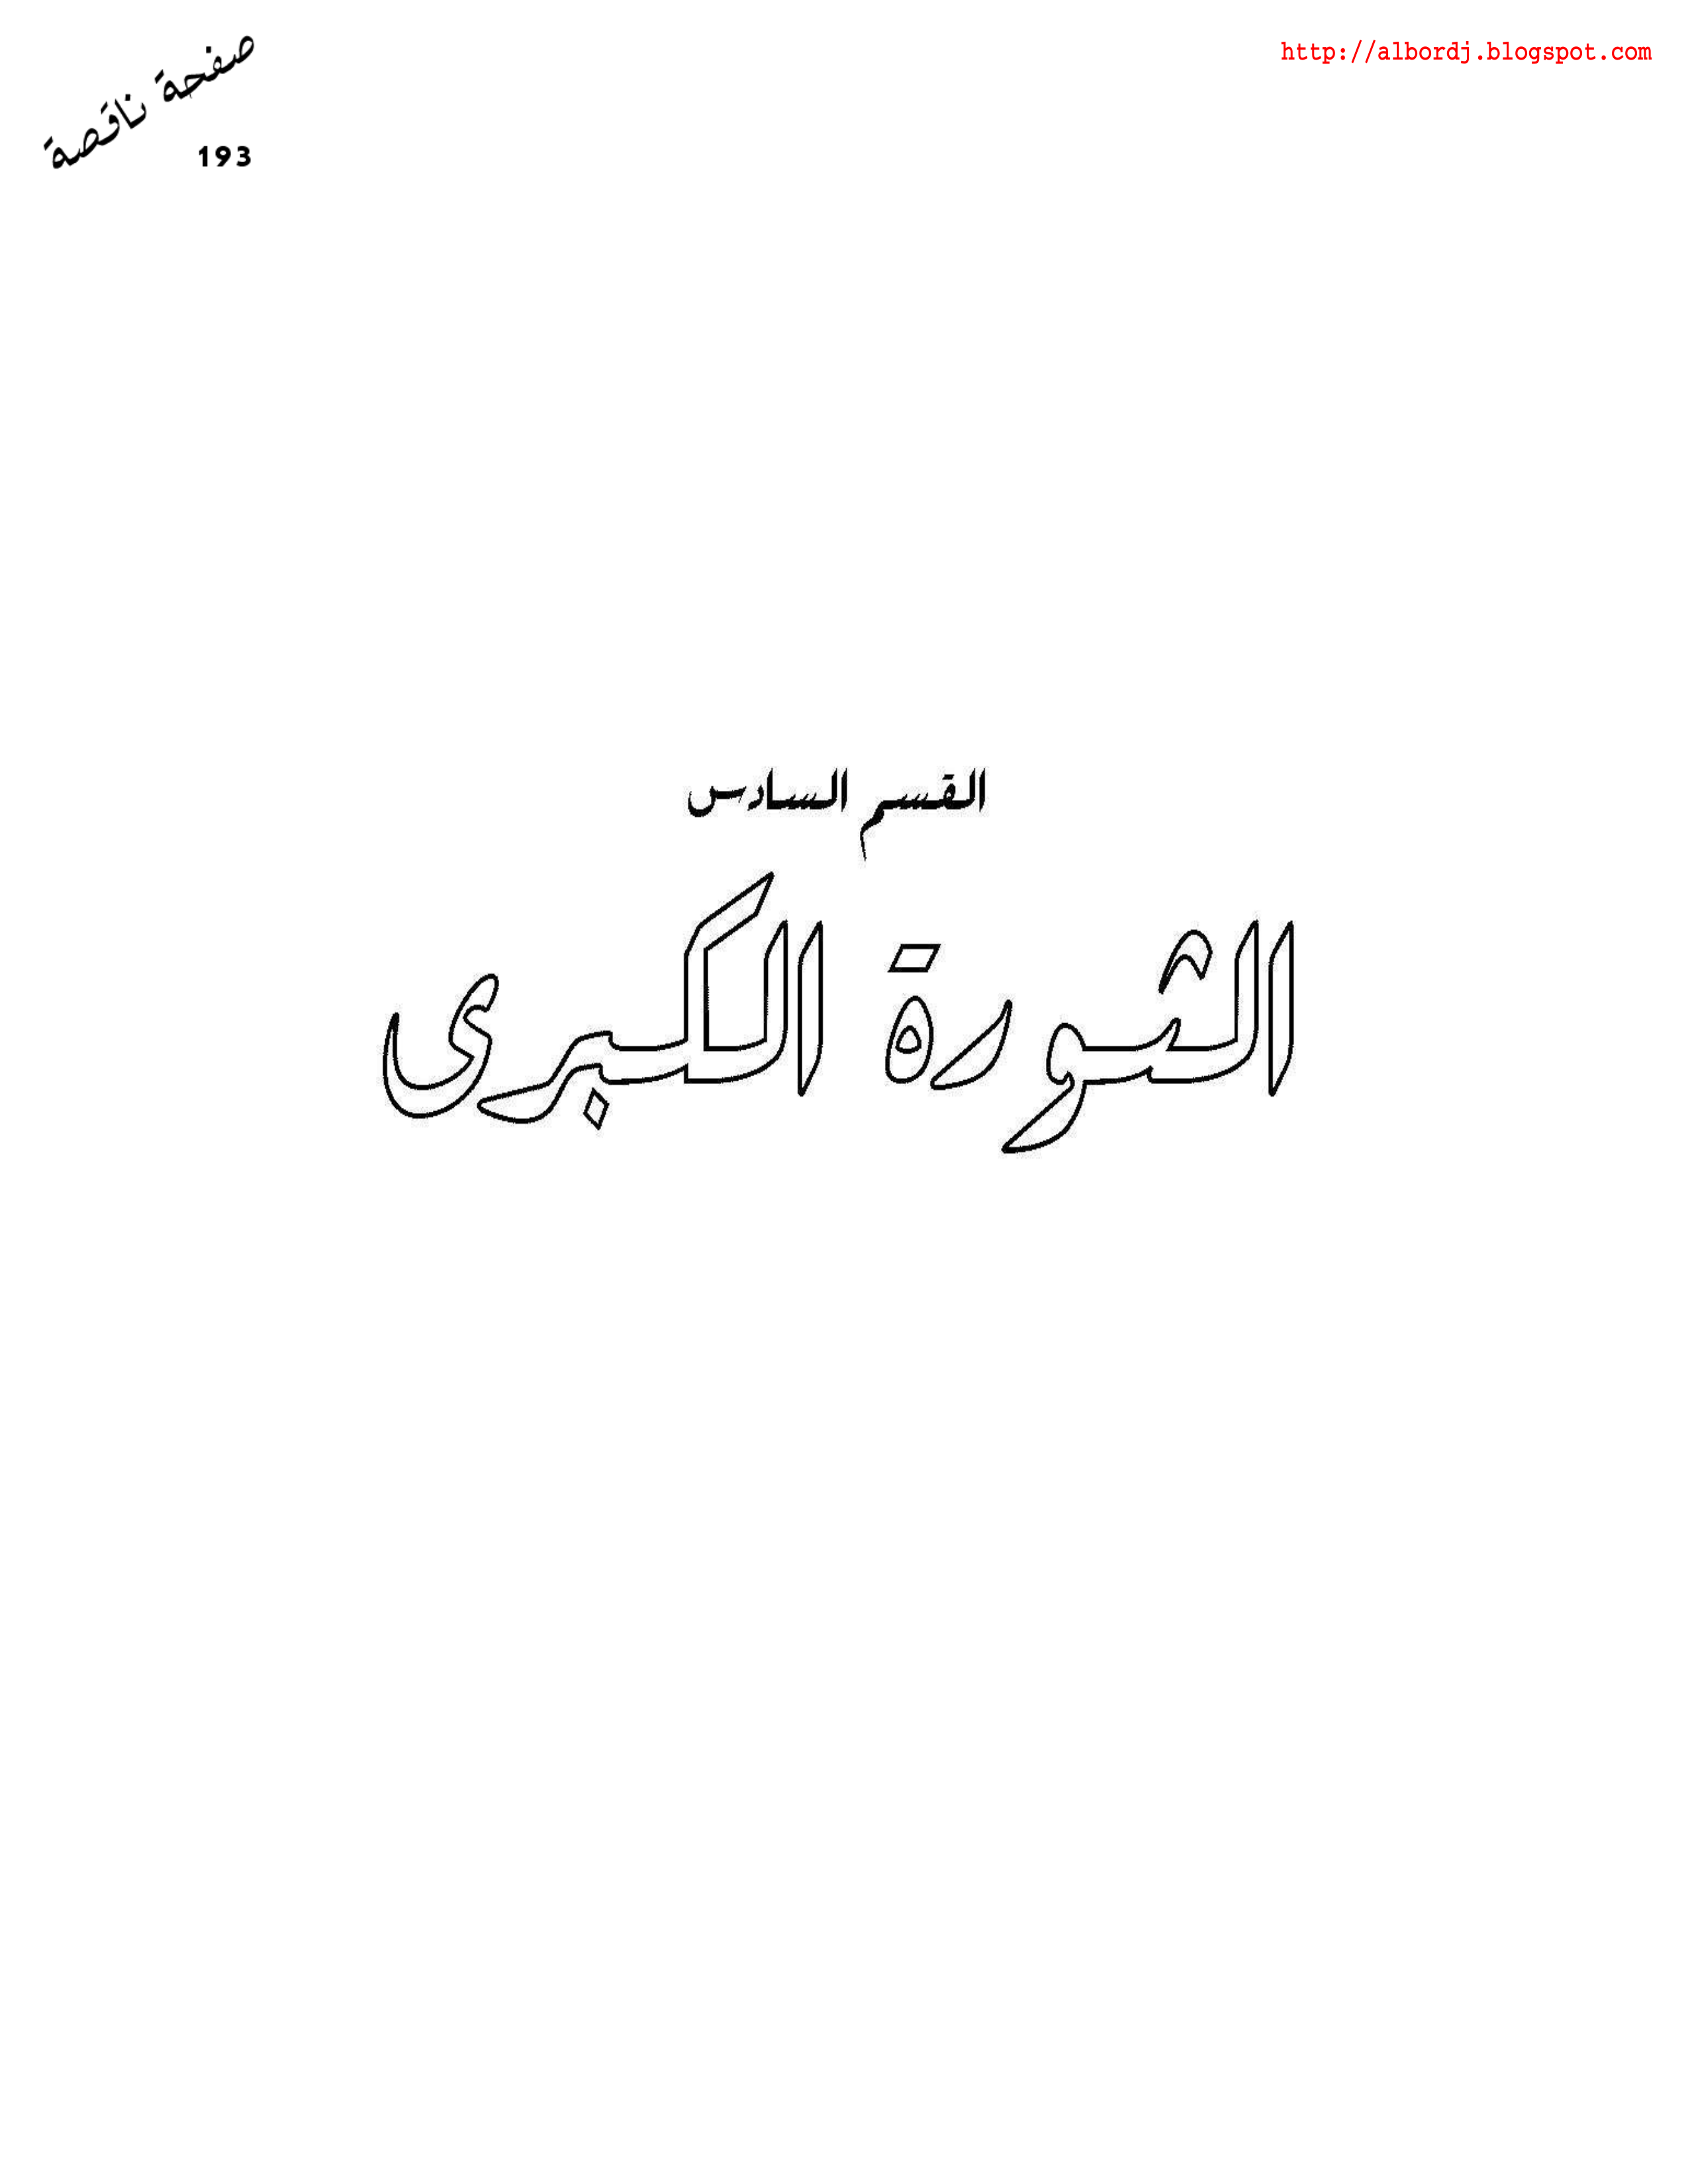 http://albordj.blogspot.com
صفحة ناقصة
193
القسم السادس
الثورة الكبرى